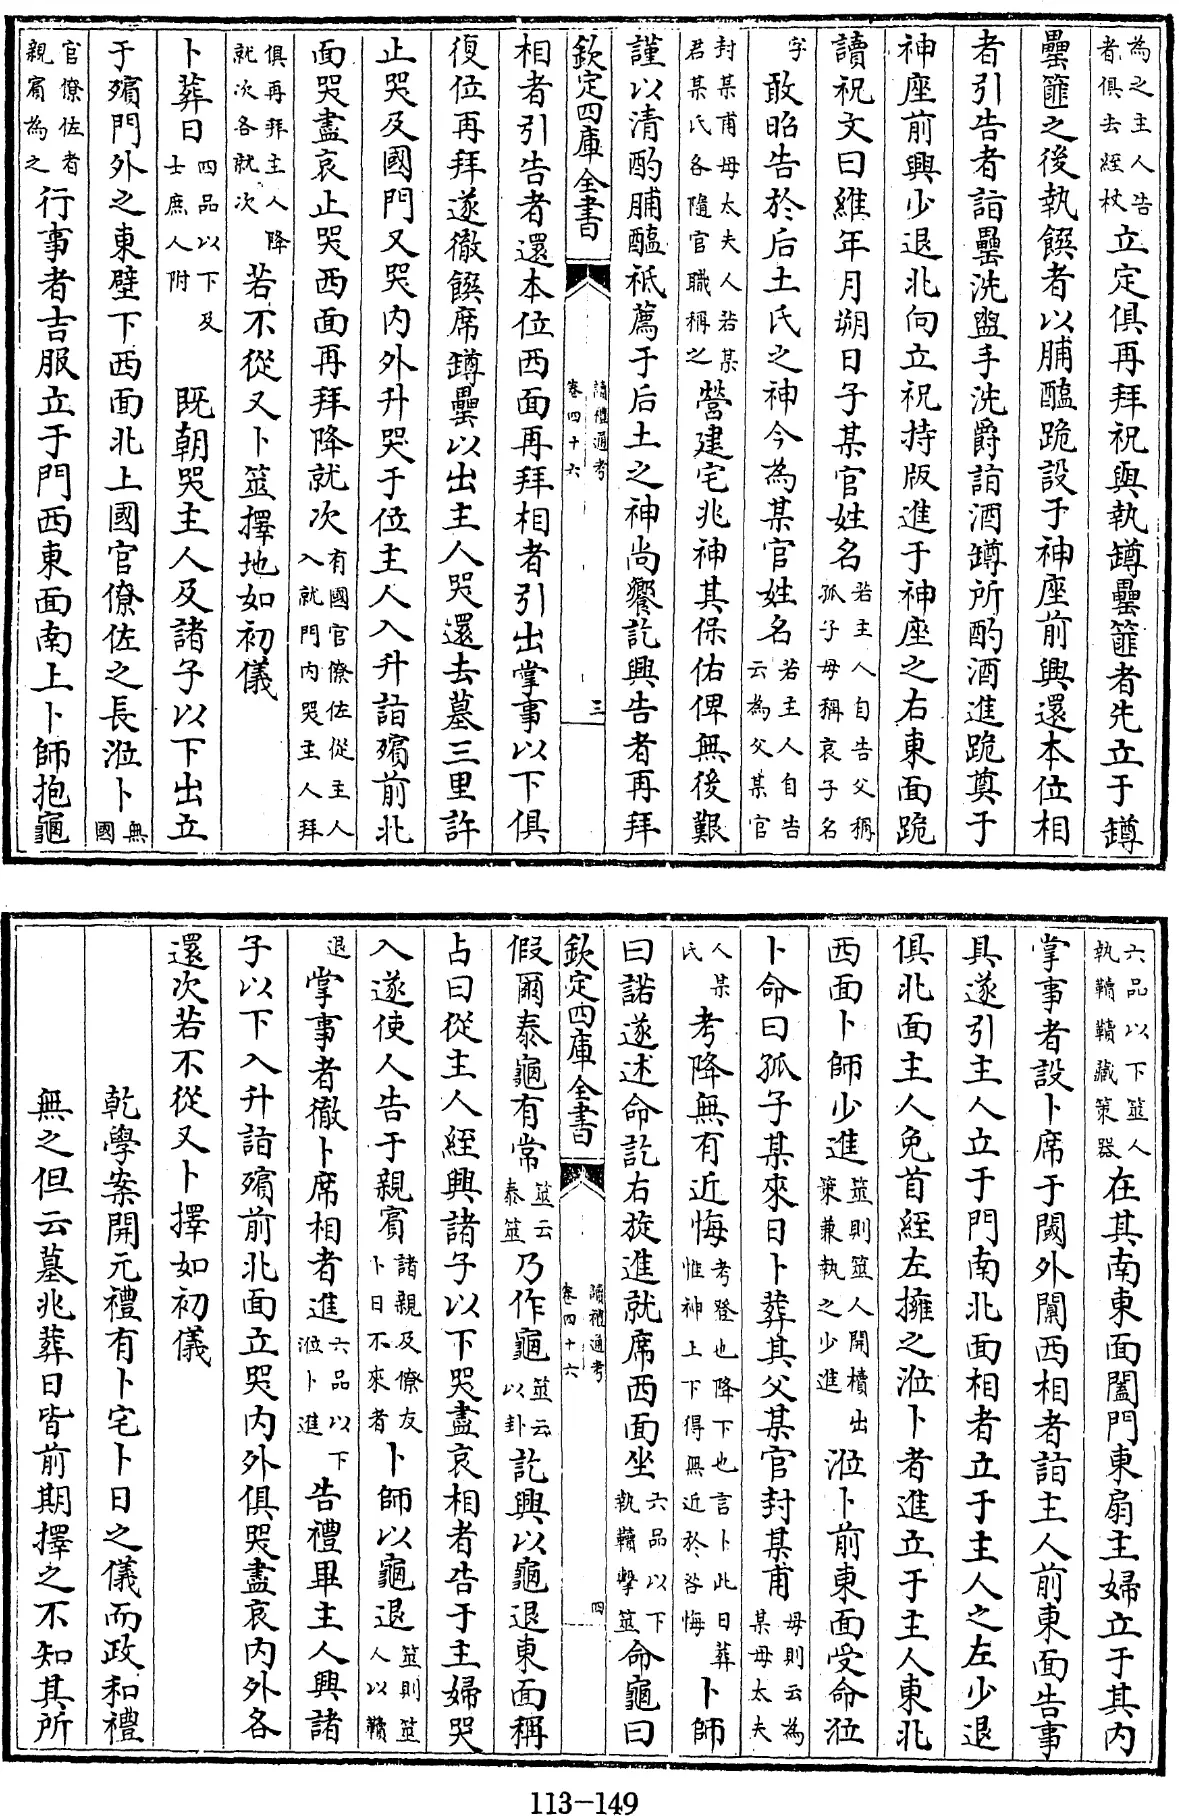 為之主人告者俱去絰杖立定俱再拜祝與執罇罍篚者先立于罇
罍篚之後執饌者以脯醢跪設于神座前興還本位相
者引告者詣罍洗盥手洗爵詣酒罇所酌酒進跪奠于
神座前興少退北向立祝持版進于神座之右東面跪
讀祝文曰維年月朔日子某官姓名若主人自告父稱孤子母稱哀子名
字敢昭告於后土氏之神今為某官姓名若主人自告云為父某官
封某甫母太夫人若某君某氏各隨官職稱之營建宅兆神其保佑俾無後艱
謹以清酌脯醢祗薦于后土之神尚饗訖興告者再拜
欽定四庫全書
讀禮通考
卷四十六
三
相者引告者還本位西面再拜相者引出掌事以下俱
復位再拜遂徹饌席罇罍以出主人哭還去墓三里許
止哭及國門又哭內外升哭于位主人入升詣殯前北
面哭盡哀止哭西面再拜降就次有國官僚佐從主人入就門內哭主人拜
俱再拜主人降就次各就次若不從又卜筮擇地如初儀
卜葬日四品以下及士庶人附既朝哭主人及諸子以下出立
于殯門外之東壁下西面北上國官僚佐之長涖卜無國
官僚佐者親賓為之行事者吉服立于門西東面南上卜師抱龜
六品以下筮人執韇韇藏策器在其南東面闔門東扇主婦立于其內
掌事者設卜席于闑外闃西相者詣主人前東面告事
具遂引主人立于門南北面相者立于主人之左少退
俱北面主人免首絰左擁之涖卜者進立于主人東北
西面卜師少進筮則筮人開櫝出策兼執之少進涖卜前東面受命涖
卜命曰孤子某來日卜葬其父某官封某甫母則云為某母太夫
人某氏考降無有近悔考登也降下也言卜此日葬惟神上下得無近於咎悔卜師
曰諾遂述命訖右旋進就席西面坐六品以下執韇擊筮命龜曰
欽定四庫全書
讀禮通考
卷四十六
四
假爾泰龜有常筮云泰筮乃作龜筮云以卦訖興以龜退東面稱
占曰從主人絰興諸子以下哭盡哀相者告于主婦哭
入遂使人告于親賓諸親及僚友卜日不來者卜師以龜退筮則筮人以韇
退掌事者徹卜席相者進六品以下涖卜進告禮畢主人興諸
子以下入升詣殯前北面立哭內外俱哭盡哀內外各
還次若不從又卜擇如初儀
乾學案開元禮有卜宅卜日之儀而政和禮
無之但云墓兆葬日皆前期擇之不知其所
113-149